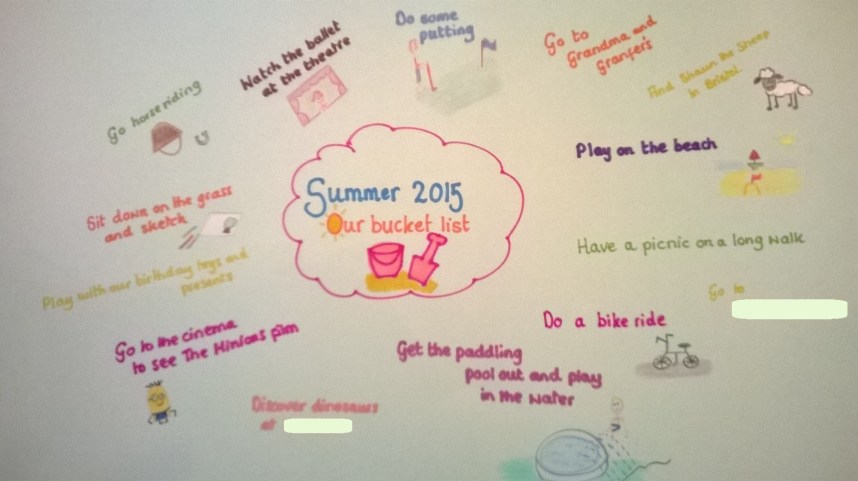 Summer 2015
Our bucket list
Do some
putting
Go to
Grandma and
Granfer's
Find Shaun the Sheep
in Bristol
Play on the beach
Have a picnic on a long walk
Go to
Do a bike ride
Get the paddling
pool out and play
in the water
Discover dinosaurs
at
Go to the cinema
to see The Minions film
Play with our birthday toys and
presents
Sit down on the grass
and sketch
Go horse riding
Watch the ballet
at the theatre